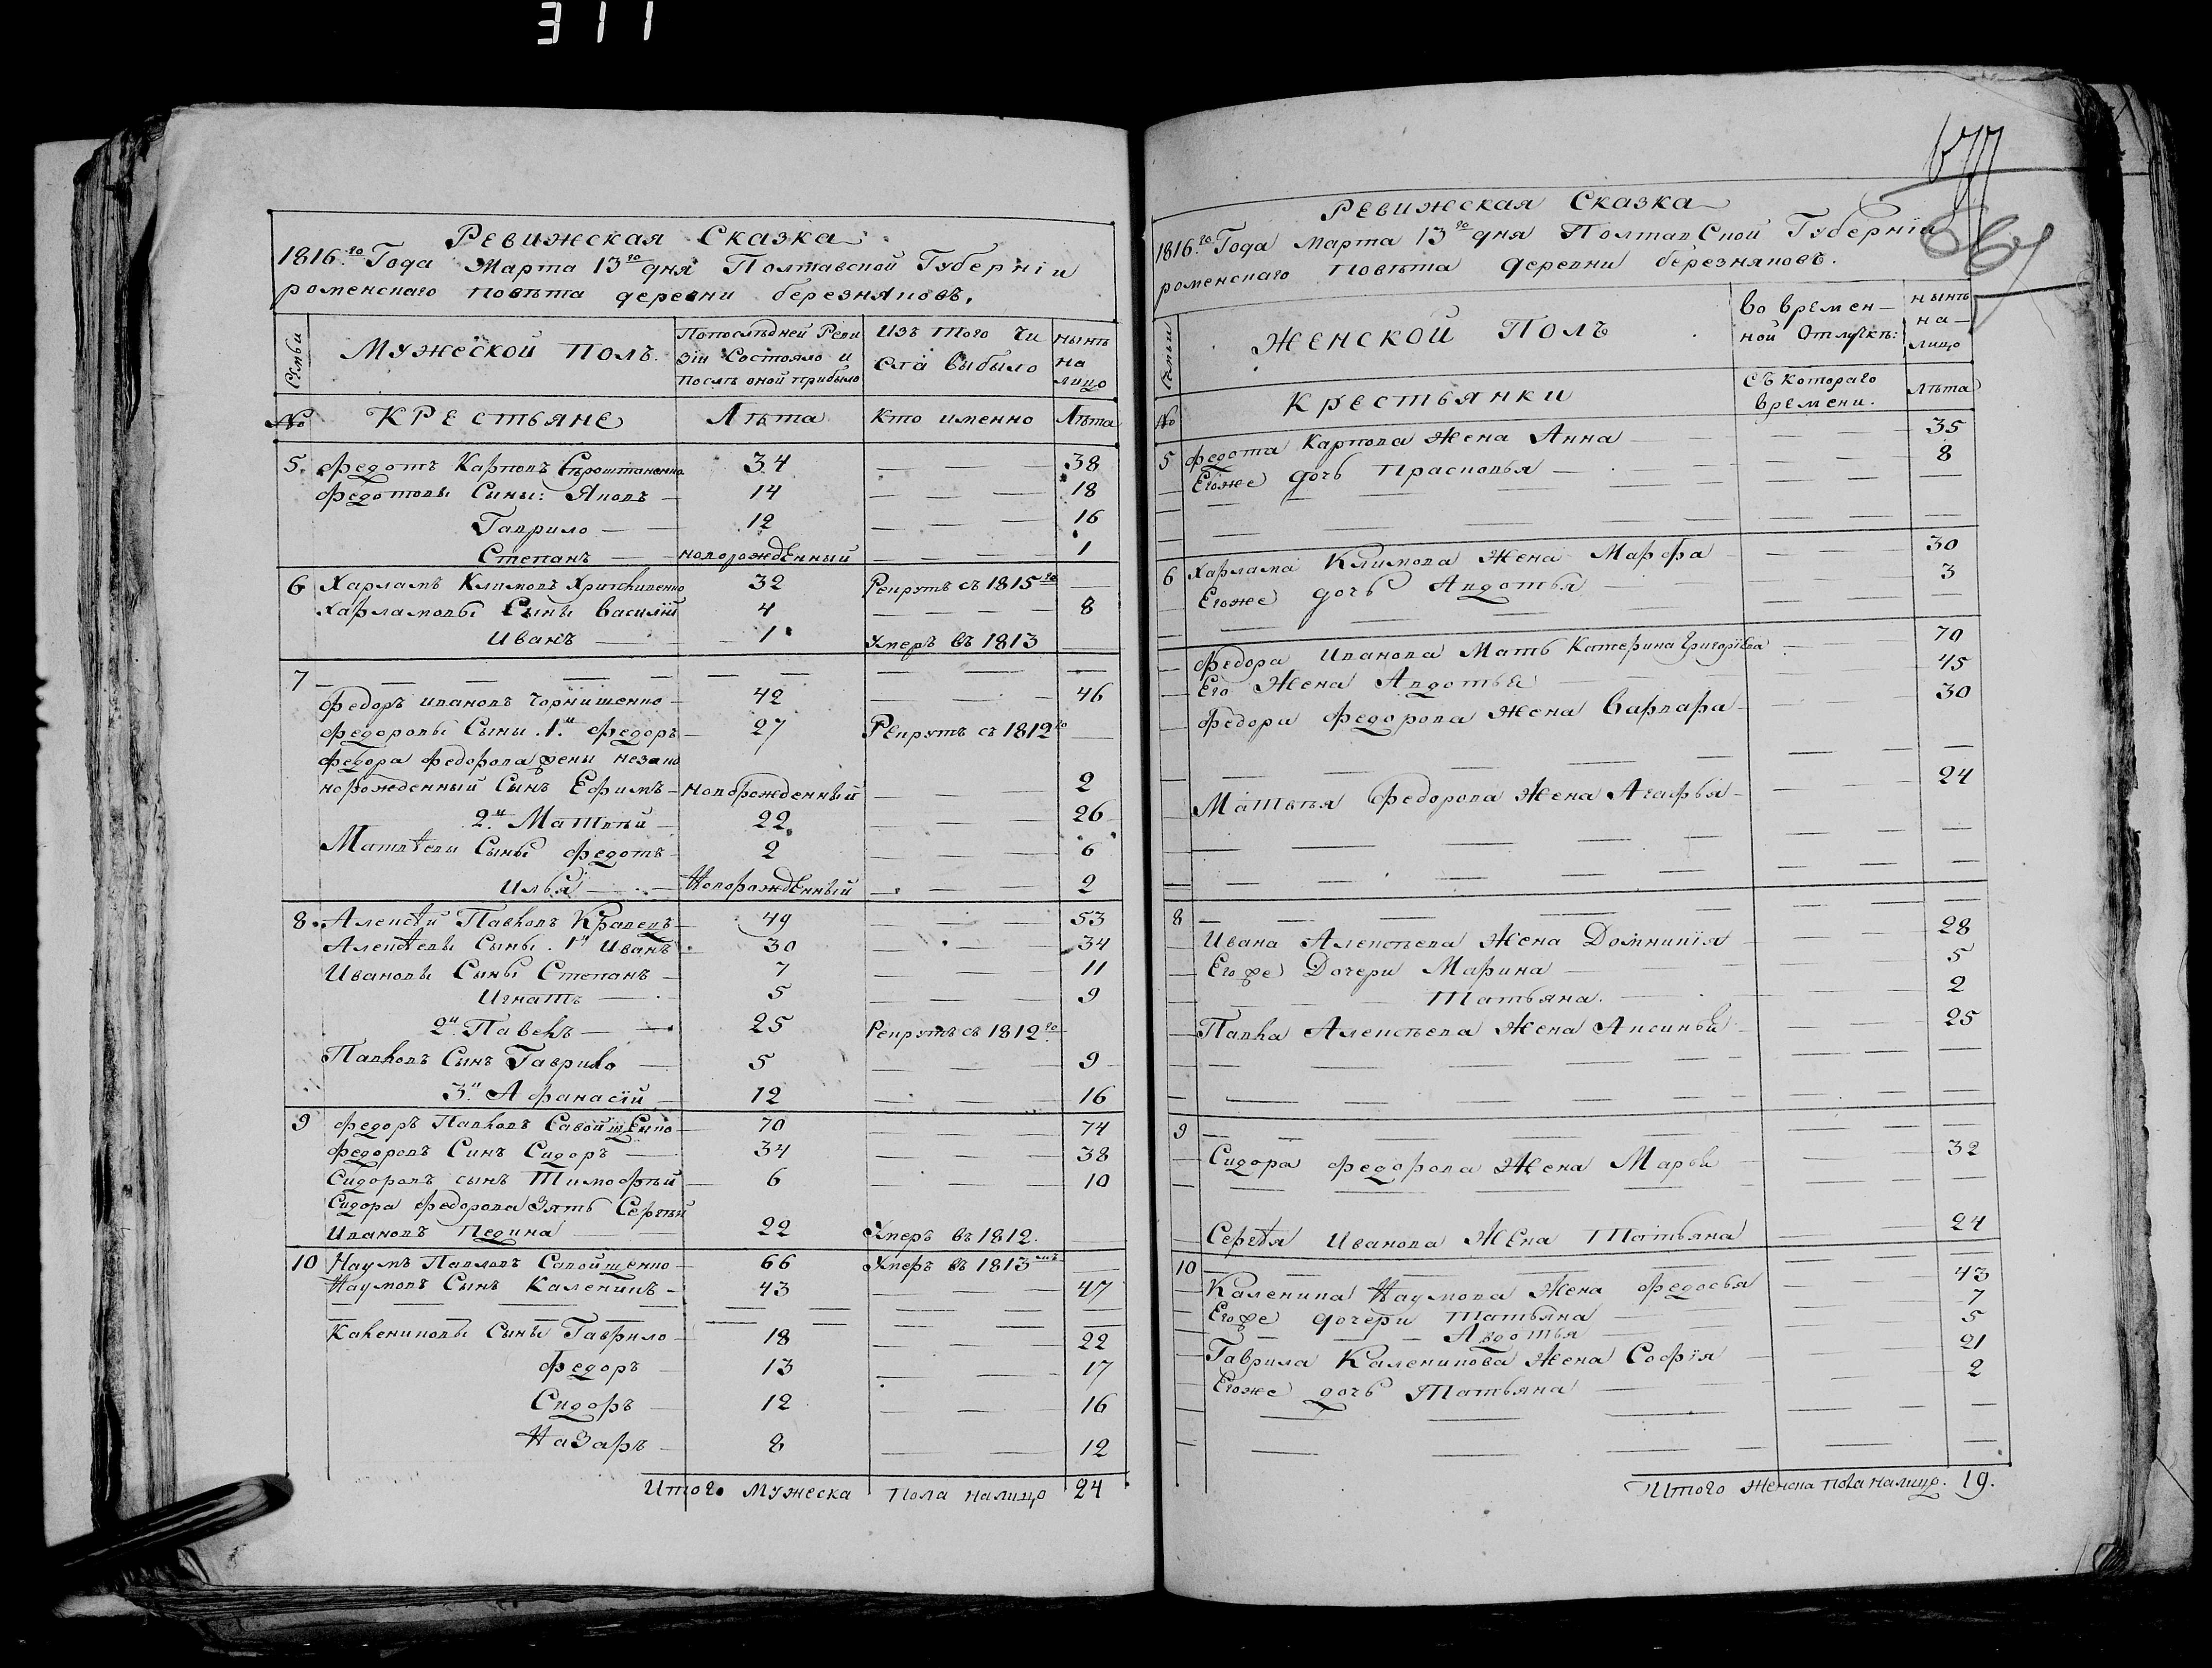 311
Ревижская Сказка
1816.го Года Марта 13го дня Полтавской Губерніи
роменскаго повѣта деревни березняковъ.
Семьи
Мужеской Полъ.
Попослѣдней Реви
зіи Состояло и
послѣ оной прибыло
Изъ того Чи
сла выбыло
нынѣ
на
лицо
№ Крестьяне Лѣта Кто именно Лѣта
5. Федотъ Карповъ 34 — — 38
Федотовы Сыны: Яковъ — 14 — — — 18
Гаврило — — 12 — — — 16
Степанъ — — новорожденный — — — 1
6 Харламъ Климовъ 32 Рекрутъ съ 1815го —
Харламовы Сыны Василій 4 — — — 8
Иванъ — — 1 Умеръ въ 1813 —
7 — — — — — — — — — — —
Федоръ Ивановъ Чорнишенко — 42 — — — 46
Федоровы Сыны. 1й Федоръ — 27 Рекрутъ съ 1812го —
Федора Федорова жены незако
норожденный Сынъ Ефимъ — новорожденный — — — 2
2й Матвѣй — 22 — — — 26
Матвѣевы Сыны Федотъ — 2 — — — 6
Илья — — Новорожденный — — — 2
8. Алексѣй Павловъ Кравецъ — 49 — — — 53
Алексѣевы Сыны. 1й Иванъ 30 — — — 34
Ивановы Сыны Степанъ — 7 — — — 11
Игнатъ — 5 — — — 9
2й Павелъ — — 25 Рекрутъ съ 1812го
Павловъ Сынъ Гаврило — 5 — — — 9
3й Афанасій — 12 — — — 16
9 Федоръ Павловъ Савойщенко — 70 — — — 74
Федоровъ Синъ Сидоръ — 34 — — — 38
Сидоровъ сынъ Тимофѣй — 6 — — — 10
Сидора Федорова Зять Сергѣй
Ивановъ Педина — 22 Умеръ въ 1812. —
10 Наумъ Павловъ Савойщенко — 66 Умеръ въ 1813мъ —
Наумовъ Сынъ Каленикъ — 43 — — — 47
— — — — — — — — — —
Калениковы Сыны Гаврило — 18 — — — 22
Федоръ 13 — — — 17
Сидоръ — 12 — — — 16
Назаръ — 8 — — — 12
Итого Мужеска Пола налицо 24
Ревижская Сказка
1816.го Года Марта 13го дня Полтавской Губерніи
роменскаго повѣта деревни березняковъ.
Семьи
Женской Полъ
Во времен—
ной Отлучкѣ:
нынѣ
на—
лицо
№ Крестьянки
съ котораго
времени.
Лѣта
5 Федота Карпова Жена Анна — — — — 35
Егоже дочь Прасковья — — — — 8
— — — — — — — —
— — — — — — — —
6 Харлама Климова Жена Марфа — — — — 30
Егоже дочь Авдотья — — — — 3
— — — — — — — —
Федора Иванова Мать Катерина Григоріева — — 70
Его Жена Авдотья — — — — 45
Федора Федорова Жена Варвара — — — 30
— — — — — — — —
Матвѣя Федорова Жена Агафья — — — — 24
— — — — — — — —
— — — — — — — —
8 — — — — — — — —
Ивана Алексѣева Жена Домникія — — — 28
Его же Дочери Марина — — — — 5
Татьяна. — — — — 2
Павла Алексѣева Жена Аксинья — — — — 25
— — — — — — — —
— — — — — — — —
9 — — — — — — — —
Сидора Федорова Жена Марья — — — — 32
— — — — — — — —
Сергѣя Иванова Жена Татьяна — — — 24
10 — — — — — — — —
Каленика Наумова Жена Федосья — — — 43
Его же дочери Татьяна — — — — 7
— — — Авдотья — — — 5
Гаврила Каленикова Жена Софія — — — — 21
Егоже дочь Татьяна — — — — 2
— — — — — — —
— — — — — — —
Итого Женска пола налицо. 19.